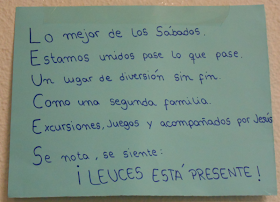 Lo mejor de los Sábados.
Estamos unidos pase lo que pase.
Un lugar de diversión sin fin.
Como una segunda familia.
Excursiones, Juegos y acompañados por Jesús
Se nota, se siente:
¡LEUCES ESTÁ PRESENTE!